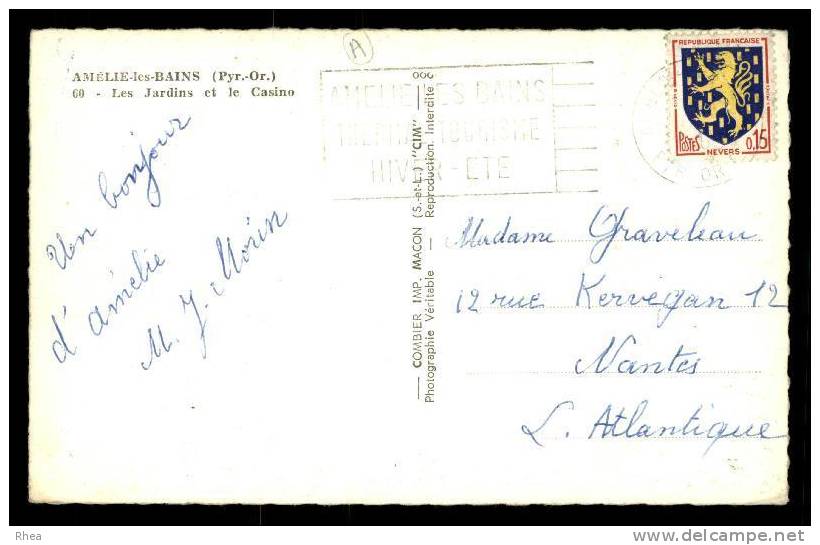 AMÉLIE-les-BAINS (Pyr.-Or.)
60 - Les Jardins et le Casino
Un bonjour
d'amélie
M. J. Morin
A
AMELIE LES BAINS
TOURISME
HIVER - ETE
COMBIER IMP. MACON (S.-et-L.) "CIM"
Photographie Véritable — Reproduction. Interdite
REPUBLIQUE FRANÇAISE
POSTES
0,15
NEVERS
Madame Graveleau
12 rue Kervégan 12
Nantes
L. Atlantique
Rhea
delcampe.net